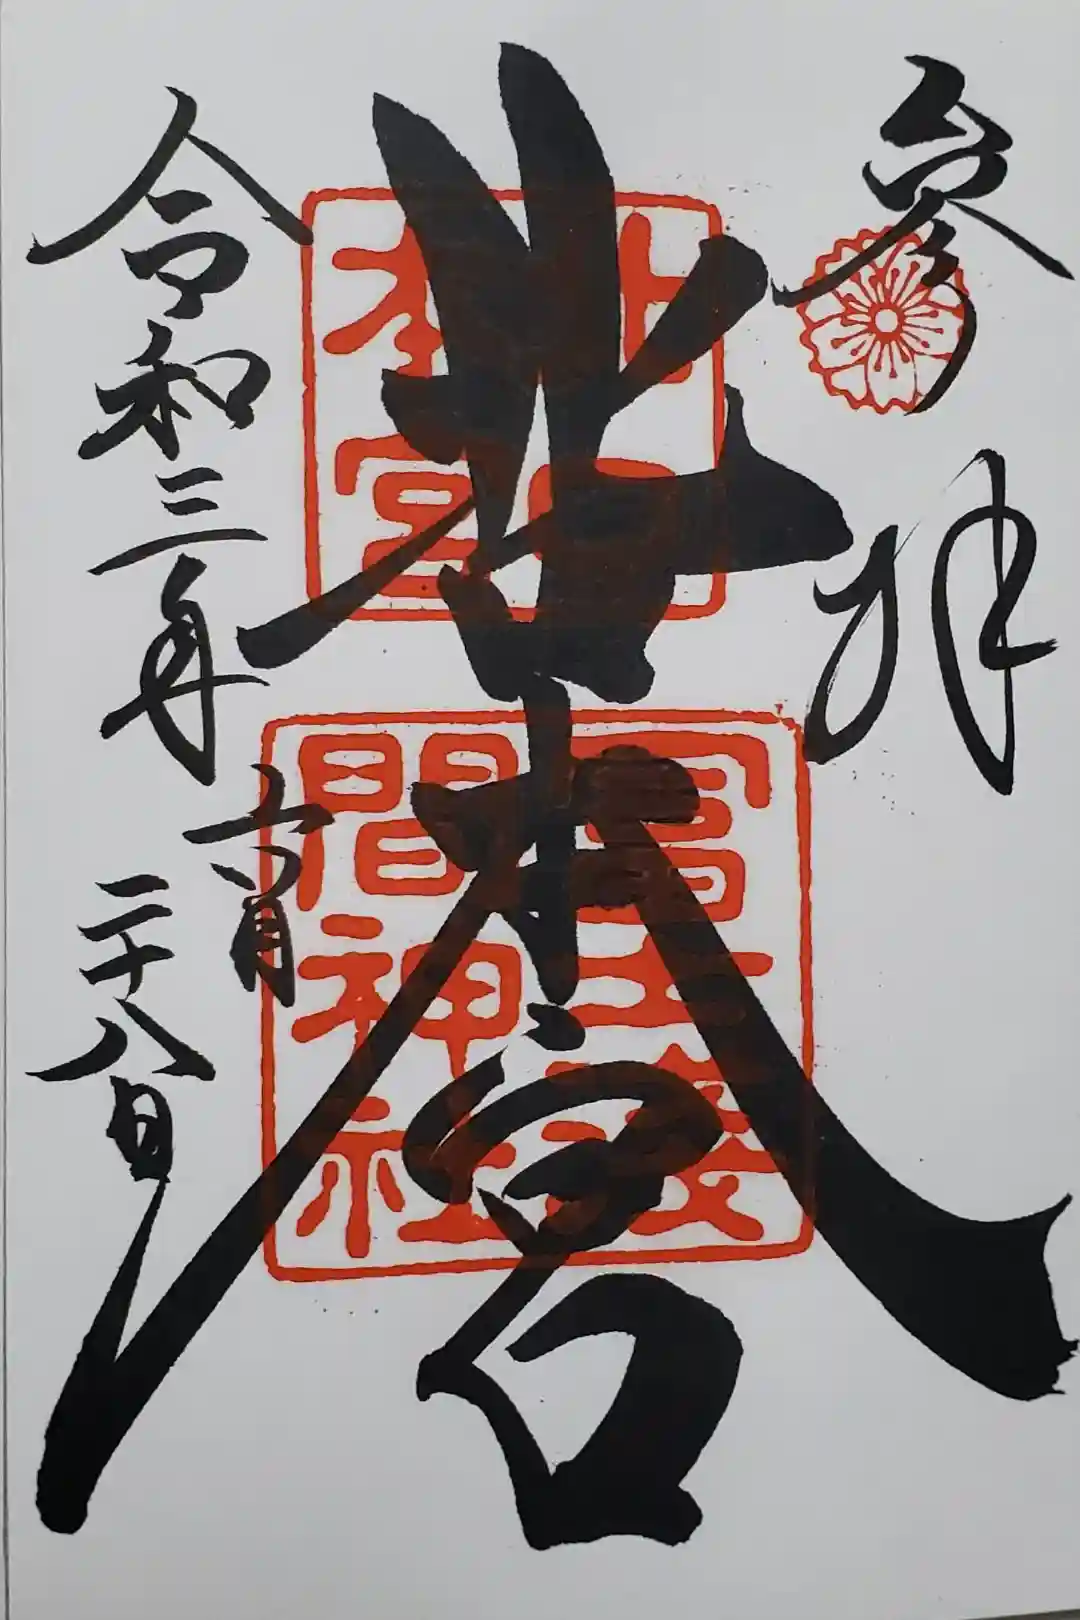 参拝
北口本宮
北口
本宮
冨士淺
間神社
令和三年六月二十八日